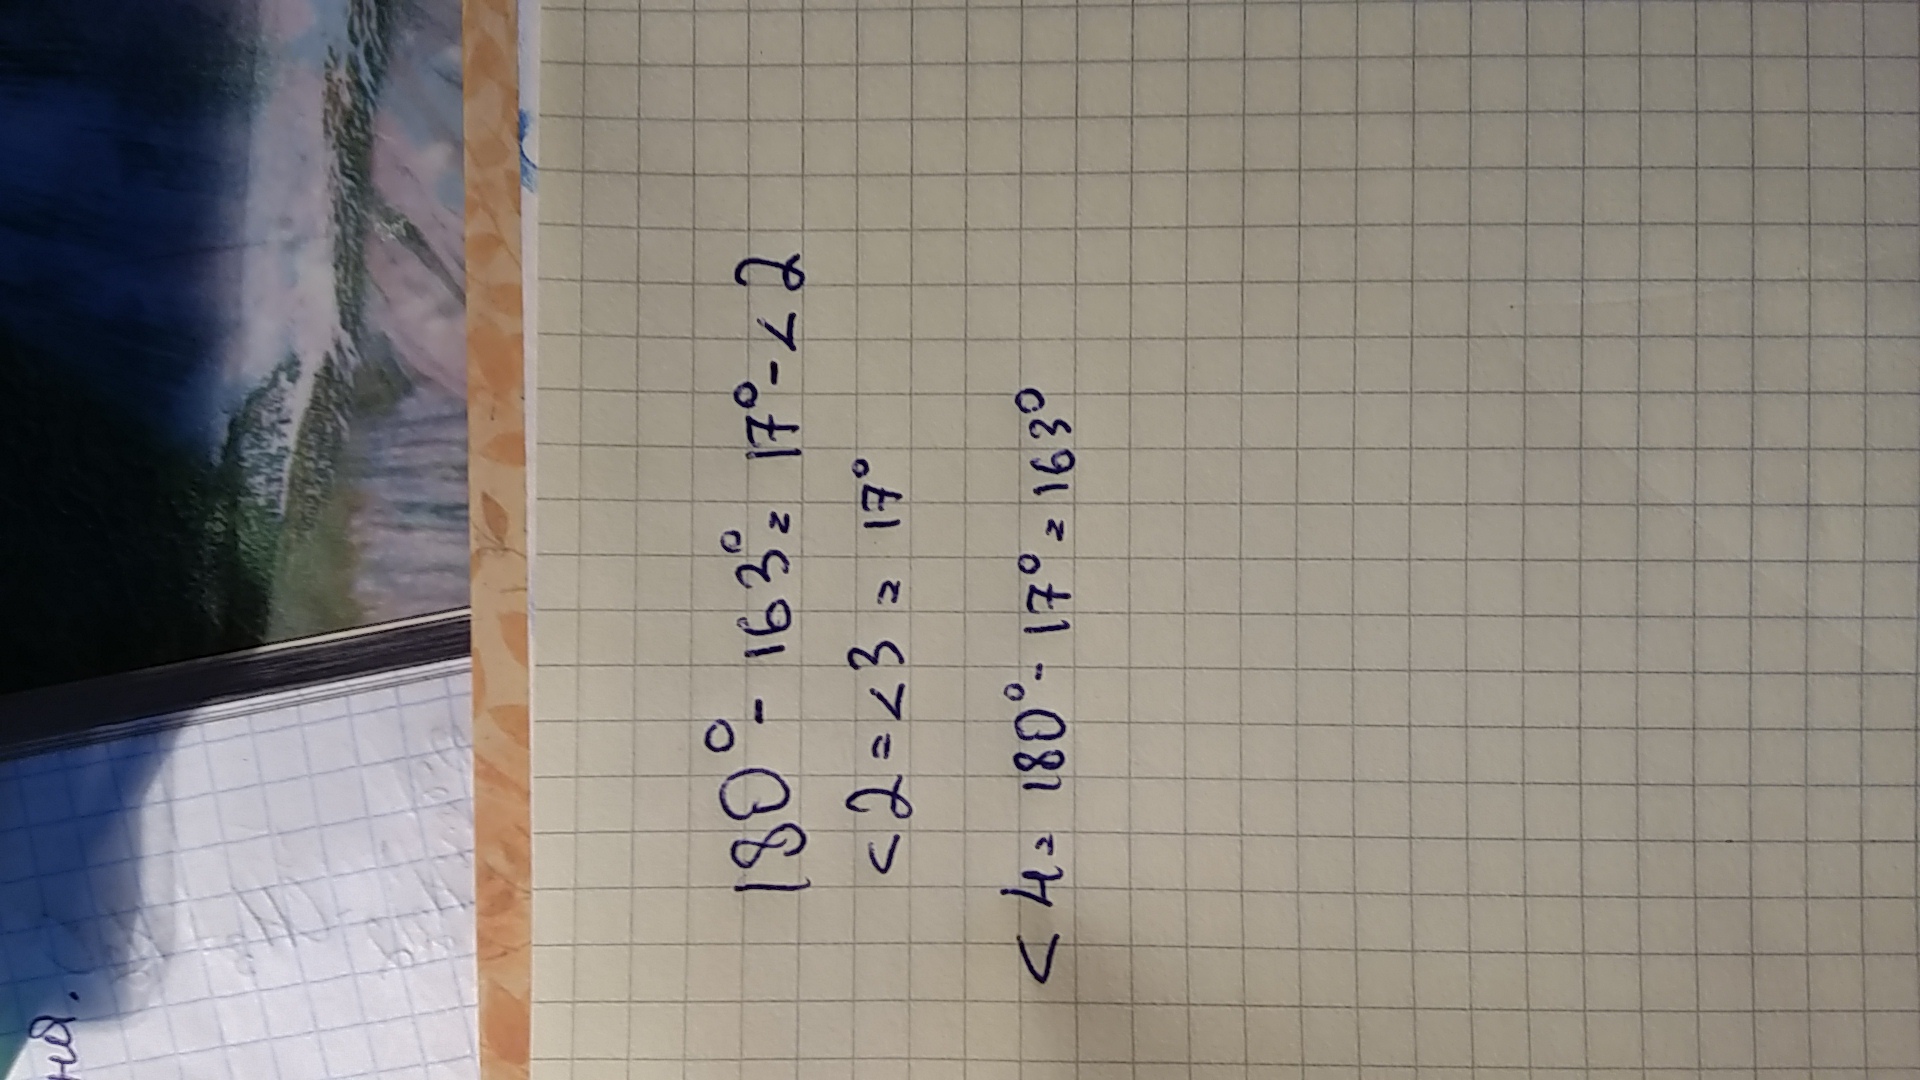 180° - 163° = 17° - < 2
< 2 = < 3 = 17°
< 4 = 180° - 17° = 163°
ня.